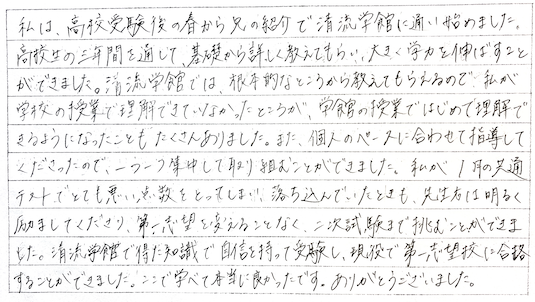 私は、高校受験後の春から兄の紹介で清流学館に通い始めました。
高校生の三年間を通して、基礎から詳しく教えてもらい、大きく学力を伸ばすこと
ができました。清流学館では、根本的なところから教えてもらえるので、私が
学校の授業で理解できていなかったところが、学館の授業ではじめて理解で
きるようになったことも たくさんありました。また、個人のペースに合わせて指導して
くださったので、一つ一つ集中して取り組むことができました。私が 1月の共通
テストでとても悪い点数をとってしまい、落ち込んでいたときも、先生方は明るく
励ましてくださり、第一志望を変えることなく、二次試験まで挑むことができま
した。清流学館で得た知識で自信を持って受験し、現役で第一志望校に合格
することができました。ここで学べて本当に良かったです。ありがとうございました。